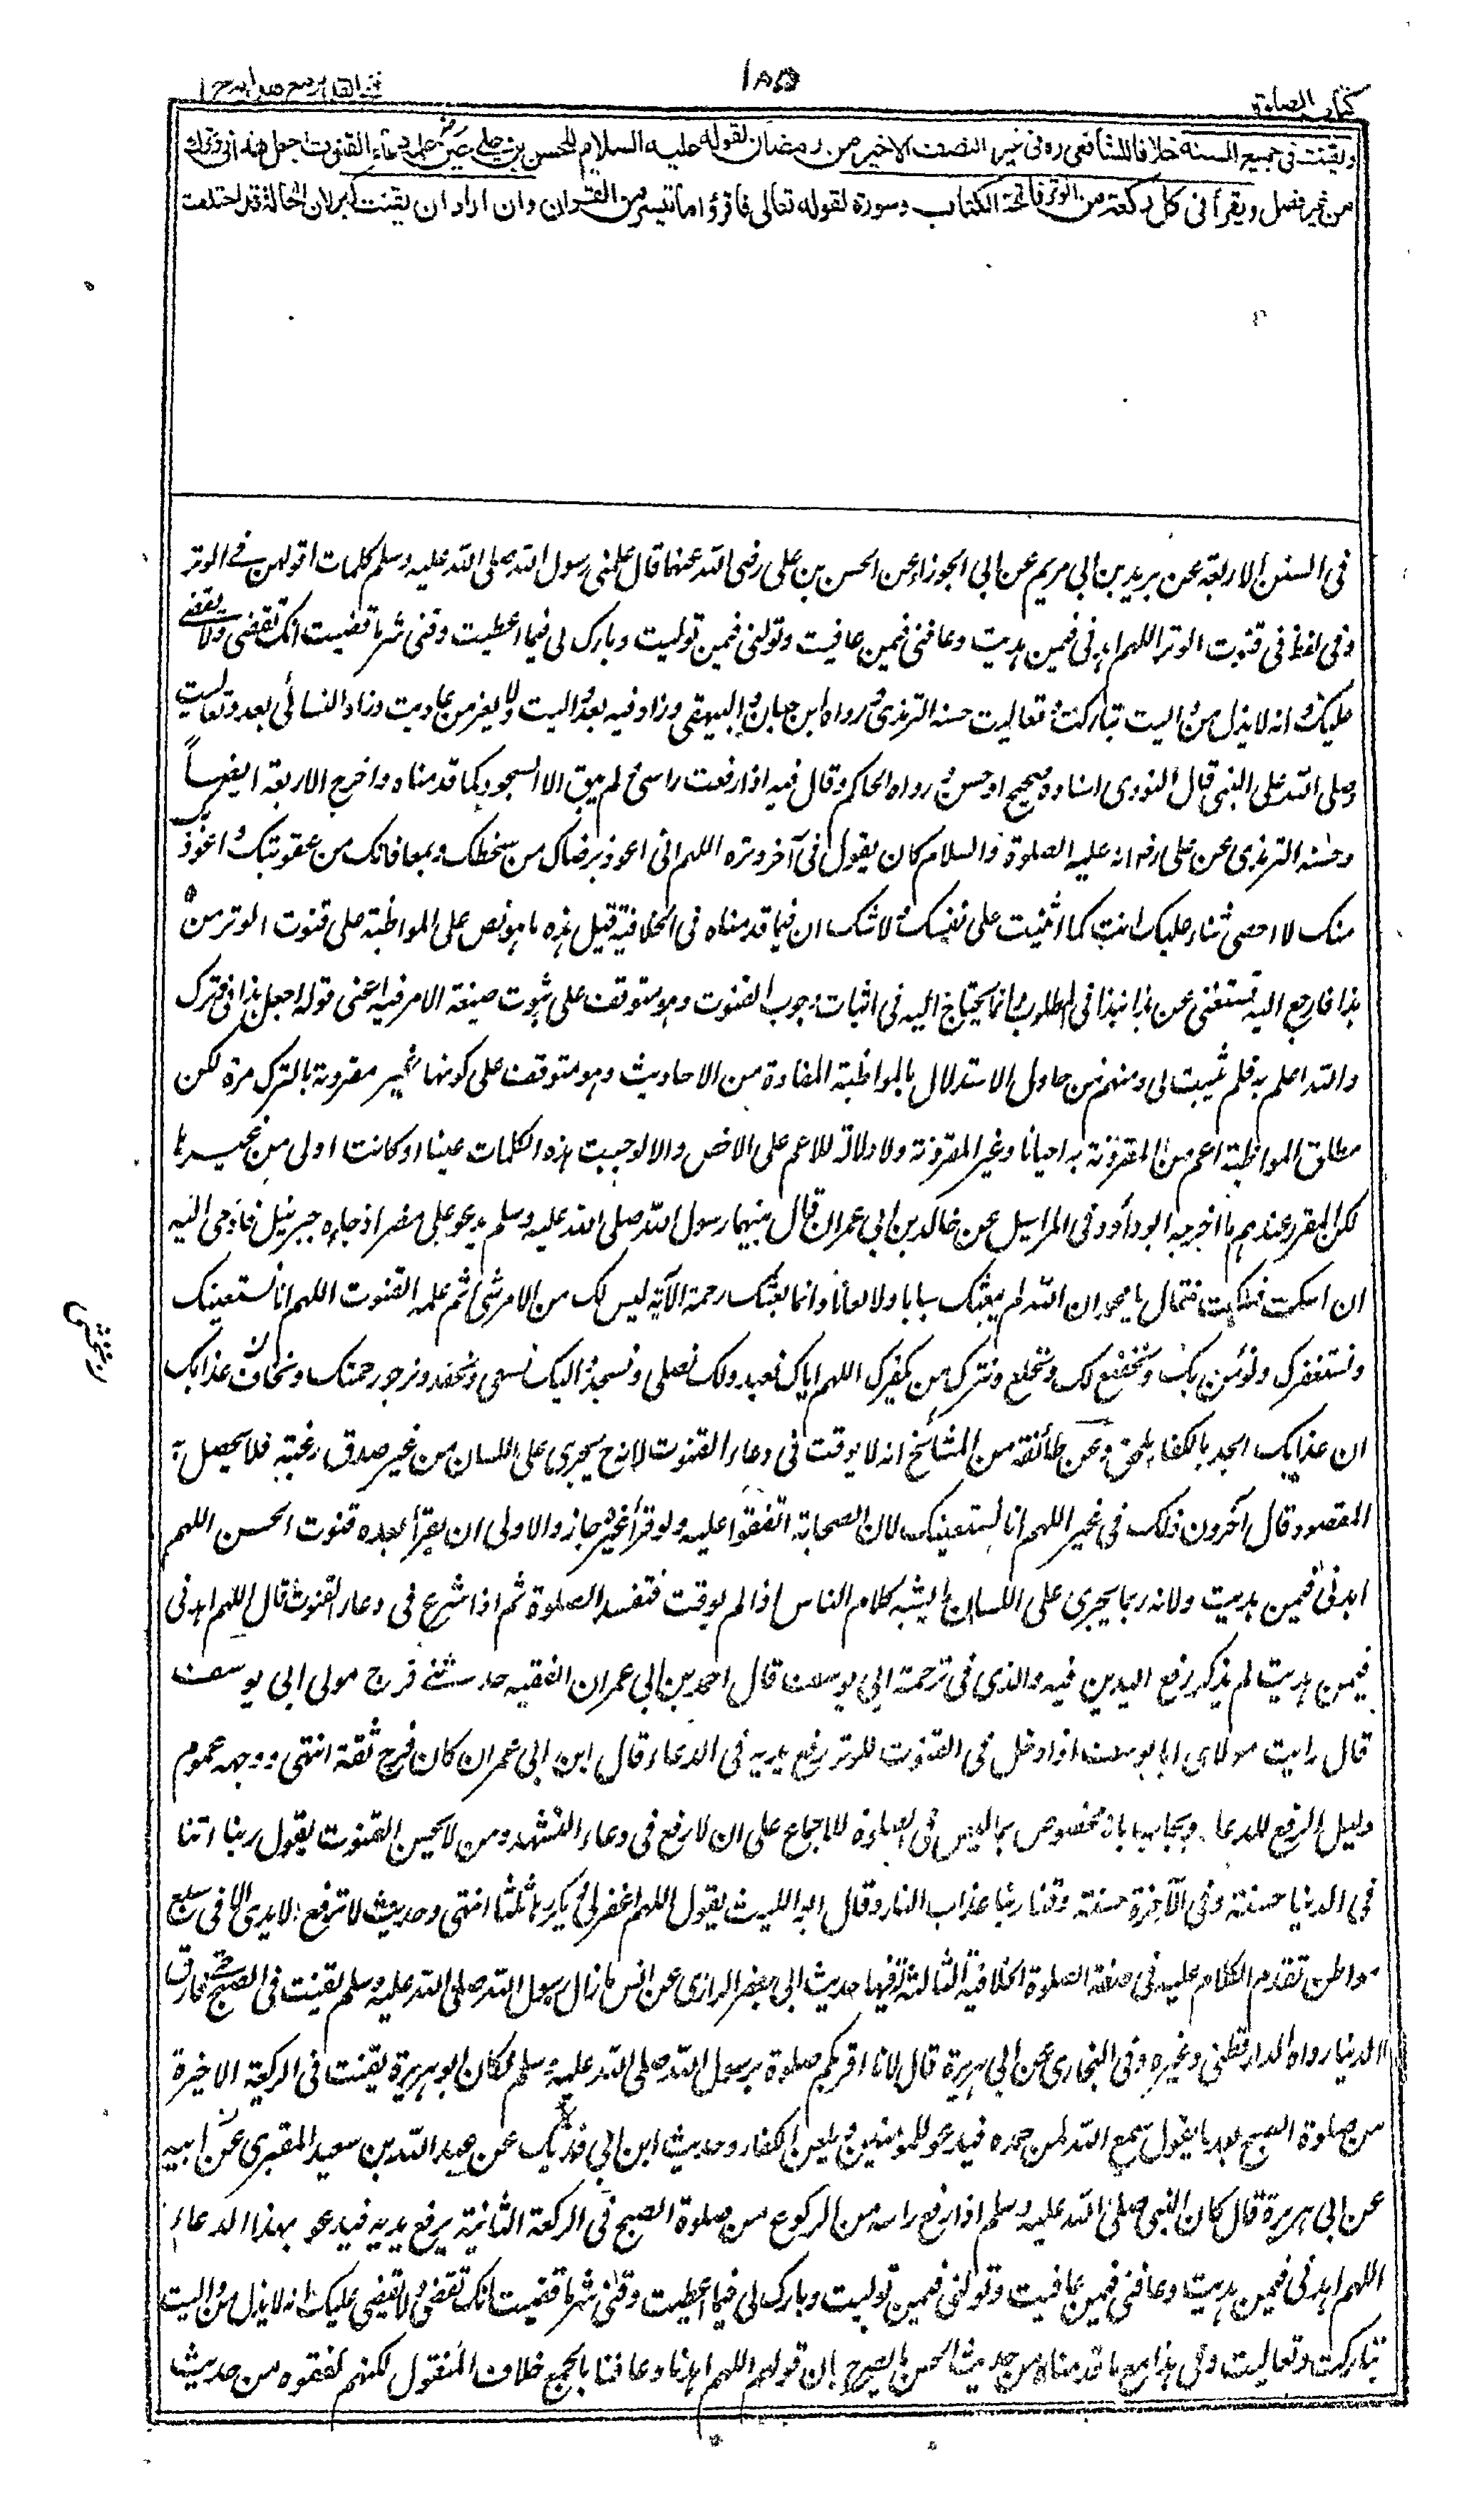 كتاب الصلوة
١٨٥
ويقنت فى جميع السنة خلافا للشافعى ره فى غير النصف الاخير من رمضان لقوله عليه السلام للحسن بن على حين علمه دعاء القنوت اجعل هذا فى وترك
من غير فصل ويقرأ فى كل ركعة من الوتر فاتحة الكتاب وسورة لقوله تعالى فاقرؤا ما تيسر من القران وان اراد ان يقنت كبر لان الحالة قد اختلفت
فى السنن الاربعة عن بريد بن ابى مريم عن ابى الجوزاء عن الحسن بن على رضى الله عنهما قال علمنى رسول الله صلى الله عليه وسلم كلمات اقولهن فى الوتر
وفى لفظ فى قنوت الوتر اللهم اهدنى فيمن هديت وعافنى فيمن عافيت وتولنى فيمن توليت وبارك لى فيما اعطيت وقنى شر ما قضيت انك تقضى ولا يقضى
عليك وانه لا يذل من واليت تباركت وتعاليت حسنه الترمذى ورواه ابن حبان والبيهقى وزاد فيه بعد واليت ولا يعز من عاديت وزاد النسائى بعد وتعاليت
وصلى الله على النبى قال النووى اسناده صحيح او حسن ورواه الحاكم وقال فيه اذا رفعت راسى ولم يبق الا السجود كما قدمناه واخرج الاربعة ايضاً
وحسنه الترمذى عن على رضه انه عليه الصلوة والسلام كان يقول فى آخر وتره اللهم انى اعوذ برضاك من سخطك وبمعافاتك من عقوبتك واعوذ بك
منك لا احصى ثناء عليك انت كما اثنيت على نفسك ولا شك ان فيما قدمناه فى الخلافية قبيل هذه ما هو نص على المواظبة على قنوت الوتر من
هذا فارجع اليه تستغنى عن هذا فى المطلوب وانما يحتاج اليه فى اثبات وجوب القنوت وهو متوقف على ثبوت صيغة الامر فيه اعنى قوله اجعل هذا فى وترك
والله اعلم به فلم يثبت لى ومنهم من حاول الاستدلال بالمواظبة المفادة من الاحاديث وهو متوقف على كونها غير مقرونة بالترك مرة لكن
مطلق المواظبة اعم من المقرونة به احيانا وغير المقرونة ولا دلالة للاعم على الاخص والا لوجبت هذه الكلمات عينا او كانت اولى من غيرها
لكن المقرر عندهم ما اخرجه ابو داؤد فى المراسيل عن خالد بن ابى عمران قال بينما رسول الله صلى الله عليه وسلم يدعو على مضر اذ جاءه جبرئيل فاومى اليه
ان اسكت فسكت فقال يا محمد ان الله لم يبعثك سبابا ولا لعانا وانما بعثك رحمة الآية ليس لك من الامر شئ ثم علمه القنوت اللهم انا نستعينك
ونستغفرك ونؤمن بك ونخضع لك ونخلع ونترك من يكفرك اللهم اياك نعبد ولك نصلى ونسجد واليك نسعى ونحفد ونرجو رحمتك ونخاف عذابك
ان عذابك الجد بالكفار ملحق وعن طائفة من المشائخ انه لا يوقت فى دعاء القنوت لانه ح يجرى على اللسان من غير صدق رغبة فلا يحصل به
المقصود وقال آخرون ذلك فى غير اللهم انا نستعينك لان الصحابة اتفقوا عليه ولو قرأ غيره جاز والاولى ان يقرأ بعده قنوت الحسن اللهم
اهدنى فيمن هديت ولانه ربما يجرى على اللسان ما يشبه كلام الناس اذا لم يوقت فتفسد الصلوة ثم اذا شرع فى دعاء القنوت قال اللهم اهدنى
فيمن هديت لم يذكر رفع اليدين فيه والذى فى ترجمة ابى يوسف قال احمد بن ابى عمران الفقيه حدثنى فرج مولى ابى يوسف
قال رايت مولاى ابا يوسف اذا دخل فى القنوت للوتر رفع يديه فى الدعاء وقال ابن ابى عمران كان فرج ثقة انتهى ووجهه عموم
دليل الرفع للدعاء ويجاب بانه مخصوص بما ليس فى الصلوة للاجماع على ان لا رفع فى دعاء التشهد ومن لا يحسن القنوت يقول ربنا اتنا
فى الدنيا حسنة وفى الآخرة حسنة وقنا ربنا عذاب النار وقال ابو الليث يقول اللهم اغفر لى يكررها ثلثا انتهى وحديث لا ترفع الايدى الا فى سبع
مواطن تقدم الكلام عليه فى صفة الصلوة الخلافية الثالثة وفيها حديث ابى جعفر الرازى عن انس ما زال رسول الله صلى الله عليه وسلم يقنت فى الصبح حتى فارق
الدنيا رواه الدارقطنى وغيره وفى البخارى عن ابى هريرة قال لانا اقربكم صلوة برسول الله صلى الله عليه وسلم فكان ابو هريرة يقنت فى الركعة الاخيرة
من صلوة الصبح بعد ما يقول سمع الله لمن حمده فيدعو للمؤمنين ويلعن الكفار وحديث ابن ابى فديك عن عبد الله بن سعيد المقبرى عن ابيه
عن ابى هريرة قال كان النبى صلى الله عليه وسلم اذا رفع راسه من الركوع من صلوة الصبح فى الركعة الثانية يرفع يديه فيدعو بهذا الدعاء
اللهم اهدنى فيمن هديت وعافنى فيمن عافيت وتولنى فيمن توليت وبارك لى فيما اعطيت وقنى شر ما قضيت انك تقضى ولا يقضى عليك انه لا يذل من واليت
تباركت وتعاليت وفى هذا مع ما قدمناه من حديث الحسن ما يصرح بان قولهم اللهم اهدنا وعافنا بالجمع خلاف المنقول لكنهم لفقوه من حديث